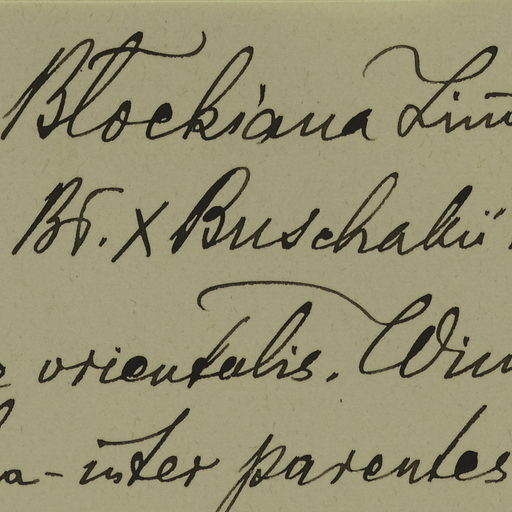 Blockiana Lim
Br. × Buschakii
orientalis. Wim
a - inter parentes